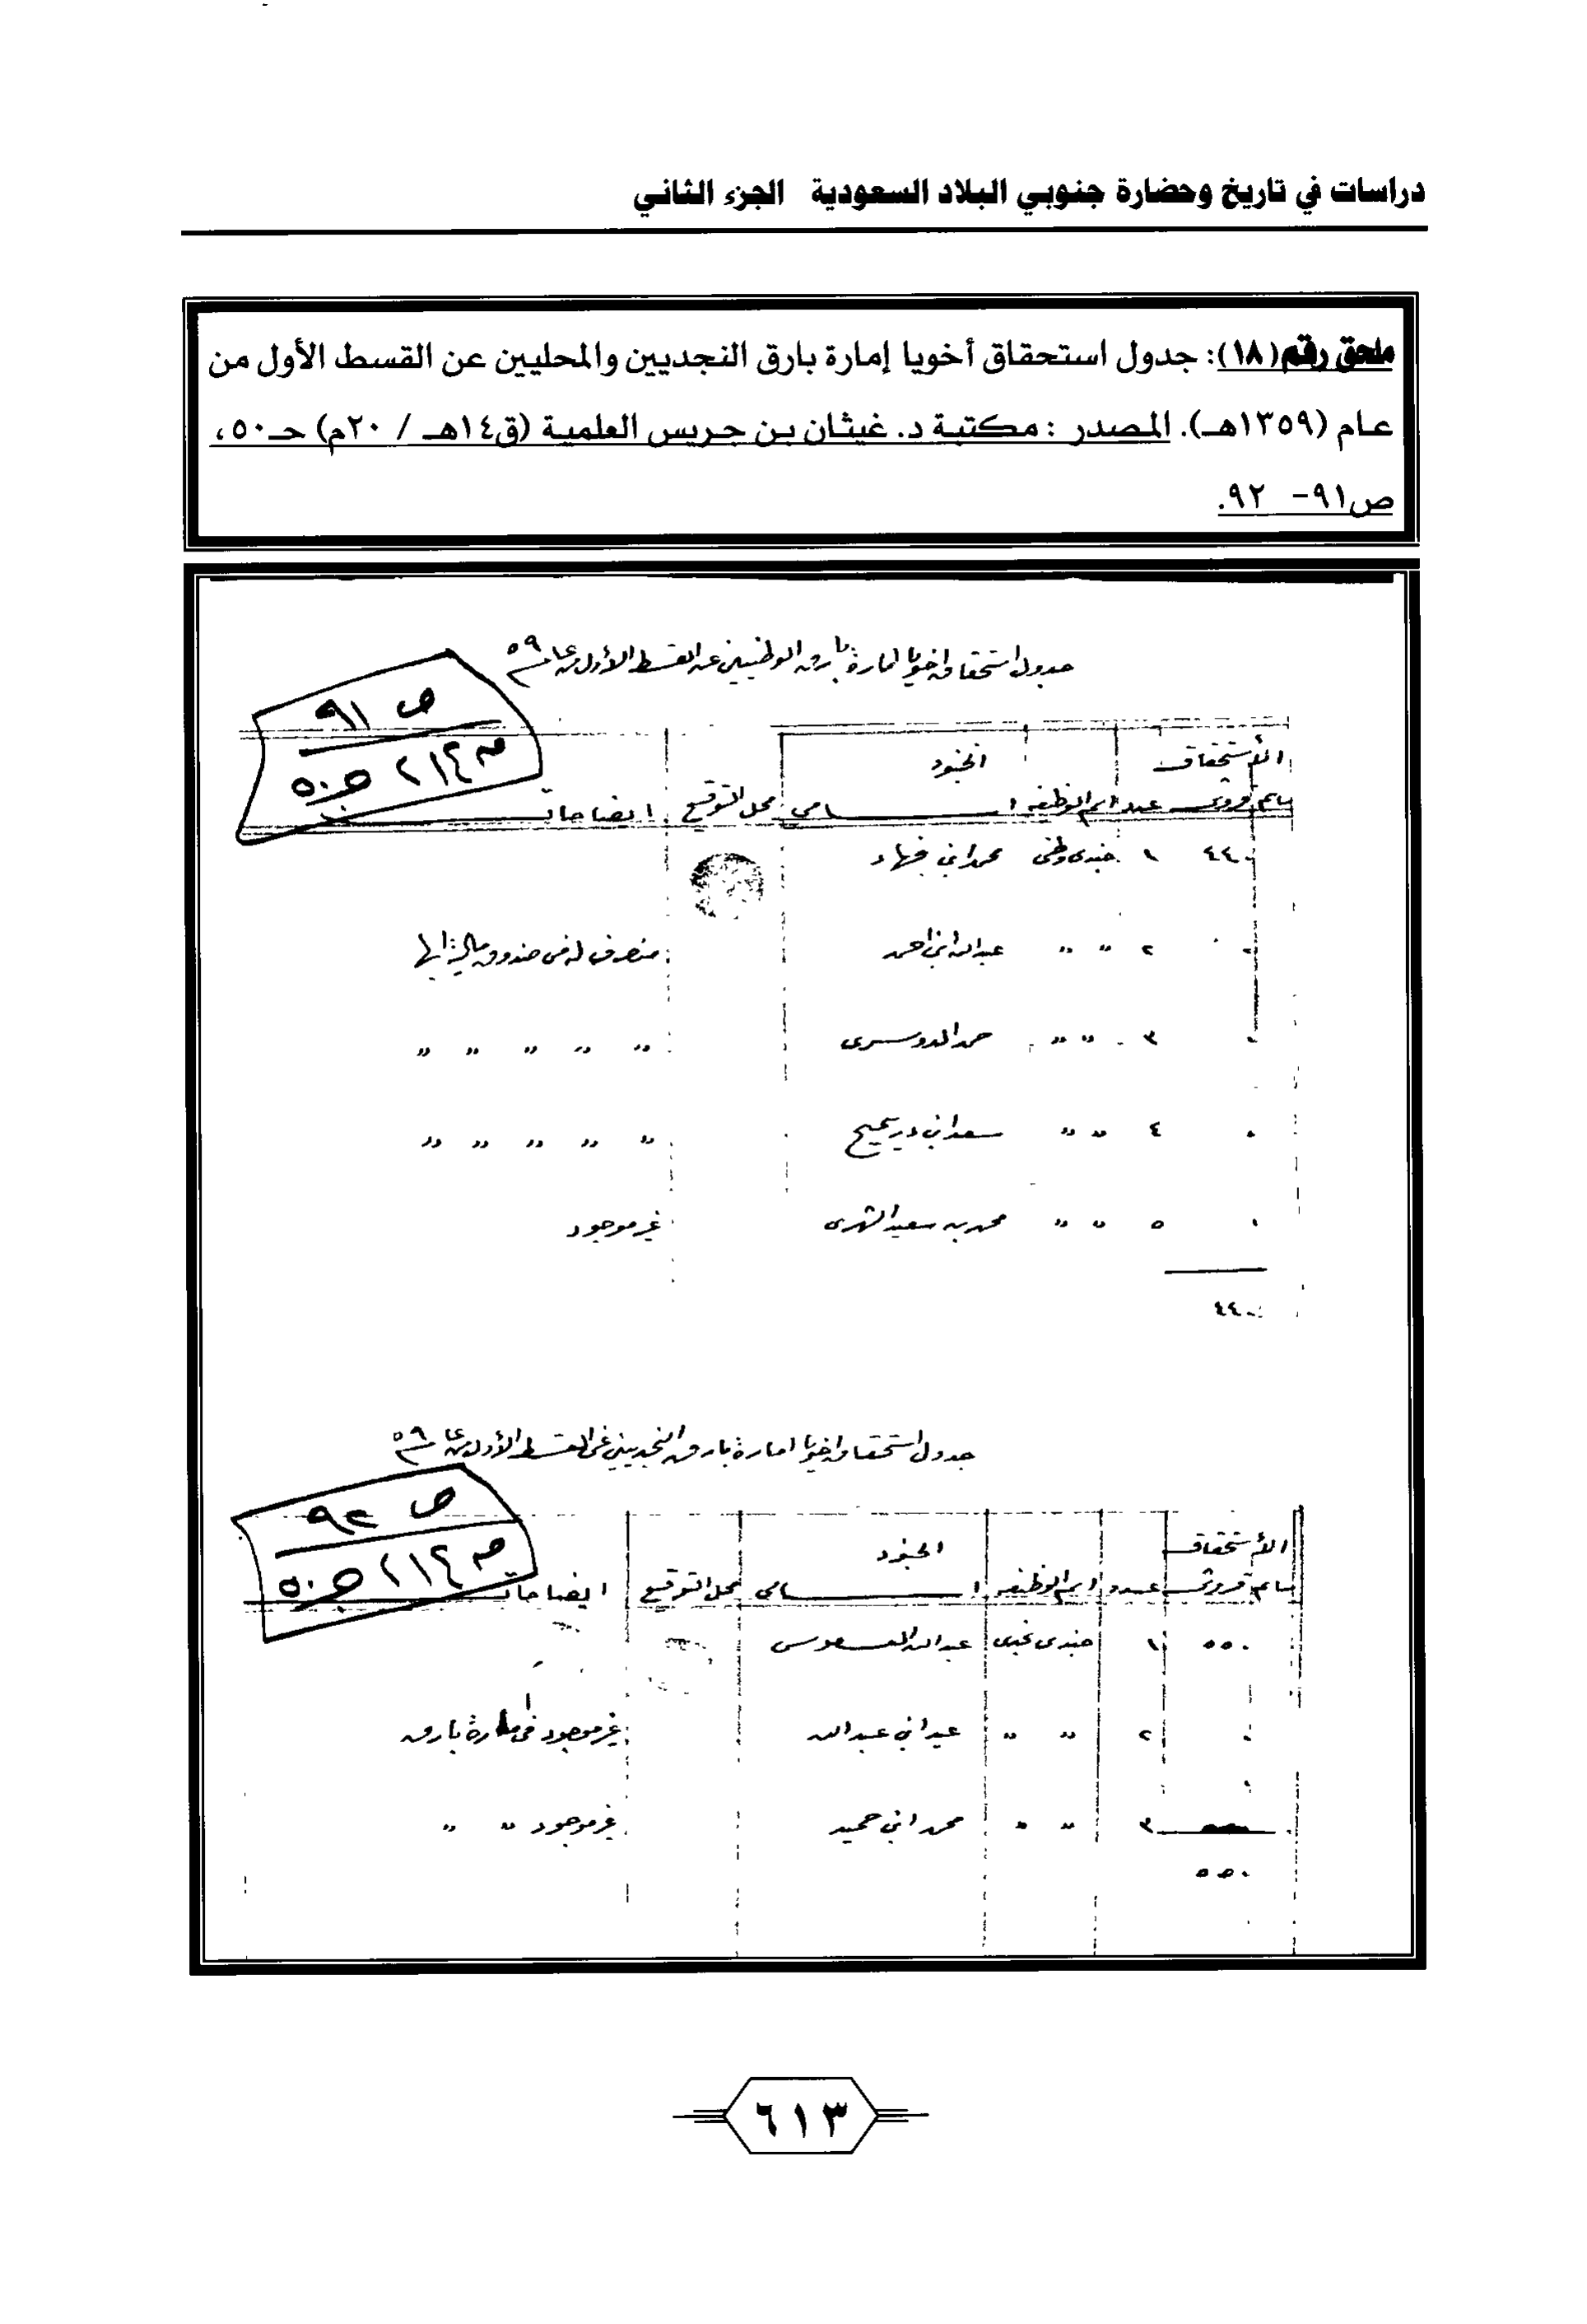 دراسات في تاريخ وحضارة جنوبي البلاد السعودية الجزء الثاني
ملحق رقم(١٨): جدول استحقاق أخويا إمارة بارق النجديين والمحليين عن القسط الأول من
عام (١٣٥٩هـ). المصدر : مكتبة د. غيثان بن جريس العلمية (ق١٤هـ / ٢٠م) حـ٥٠،
ص٩١- ٩٢.
جدول استحقاق اخويا امارة بارق الوطنيين عن القسط الأول من عام ٥٩
ص ٩١
الأستحقاق الجنود
قروش عدد اسم الوظيفه اسامي محل التوقيع ايضاحات
٤٤٠ ١ جندى وطنى محمد ابن فهاد
٢ " " عبدالله ابن احمد منصرف له من صندوق مالية ابها
٣ " " حمد الدوسرى " " " " "
٤ " " سعد ابن دريميح " " " " "
٥ " " محمد بن سعيد الشهرى غير موجود
٤٤٠
جدول استحقاق اخويا امارة بارق النجديين عن القسط الأول من عام ٥٩
ص ٩٢
الأستحقاق الجنود
قروش عدد اسم الوظيفه اسامي محل التوقيع ايضاحات
٥٥٠ ١ جندى نجدى عبدالله
٢ " " عبدالله غير موجود في امارة بارق
٣ " " محمد ابن حميد غير موجود " "
٥٥٠
٦١٣